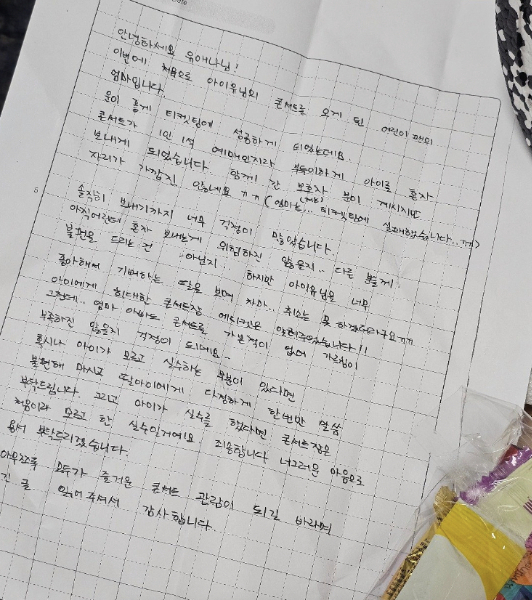 안녕하세요 유애나님!
이번에 처음으로 아이유님의 콘서트를 오게 된 어린이 팬의
엄마입니다.
운이 좋게 티켓팅에 성공하게 되었는데요.
콘서트가 1인 1석 예매인지라 부득이하게 아이를 혼자
보내게 되었습니다. 함께 간 보호자 분이 계시지만
자리가 가깝진 않네요ㅠㅠ (엄마는... 티켓팅에 실패했습니다..ㅠㅠ)
솔직히 보내기까지 너무 걱정이 많았습니다.
아직 어린데 혼자 보내는게 위험하진 않을지.. 다른 분들께
불편을 드리는 건 아닐지.. 하지만 아이유님을 너무
좋아해서 기뻐하는 딸을 보며 차마.. 취소는 못 하겠더라구요ㅠㅠ
아이에게 최대한 콘서트장 에티켓은 알려주었습니다!!
그런데.. 엄마 아빠도 콘서트를 가본적이 없어 가르침이
부족하진 않을지 걱정이 되네요..
혹시나 아이가 모르고 실수하는 부분이 있다면
불편해 마시고 딸아이에게 다정하게 한번만 말씀
부탁드립니다 그리고 아이가 실수를 했다면 콘서트장은
처음이라 모르고 한 실수일거예요 죄송합니다 너그러운 마음으로
용서 부탁드리겠습니다.
아무쪼록 모두가 즐거운 콘서트 관람이 되길 바라며
긴 글 읽어주셔서 감사합니다.